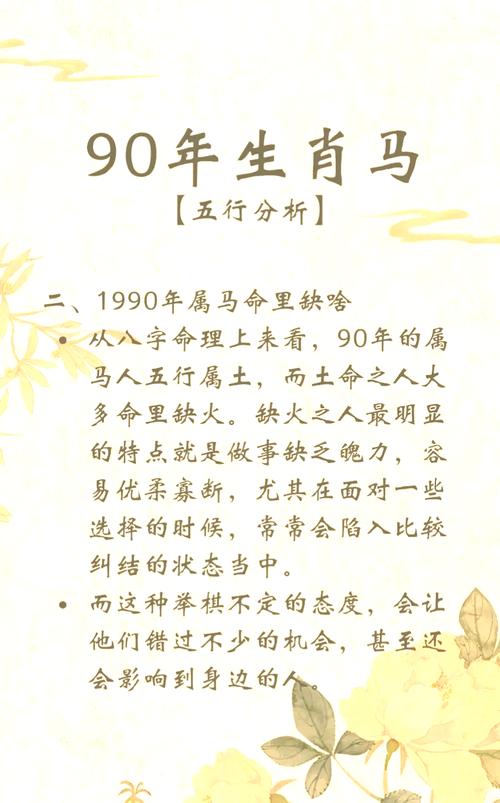 90年生肖马
【五行分析】
二、1990年属马命里缺啥
• 从八字命理上来看，90年的属
马人五行属土，而土命之人大
多命里缺火。缺火之人最明显
的特点就是做事缺乏魄力，容
易优柔寡断，尤其在面对一些
选择的时候，常常会陷入比较
纠结的状态当中。
• 而这种举棋不定的态度，会让
他们错过不少的机会，甚至还
会影响到身边的人。